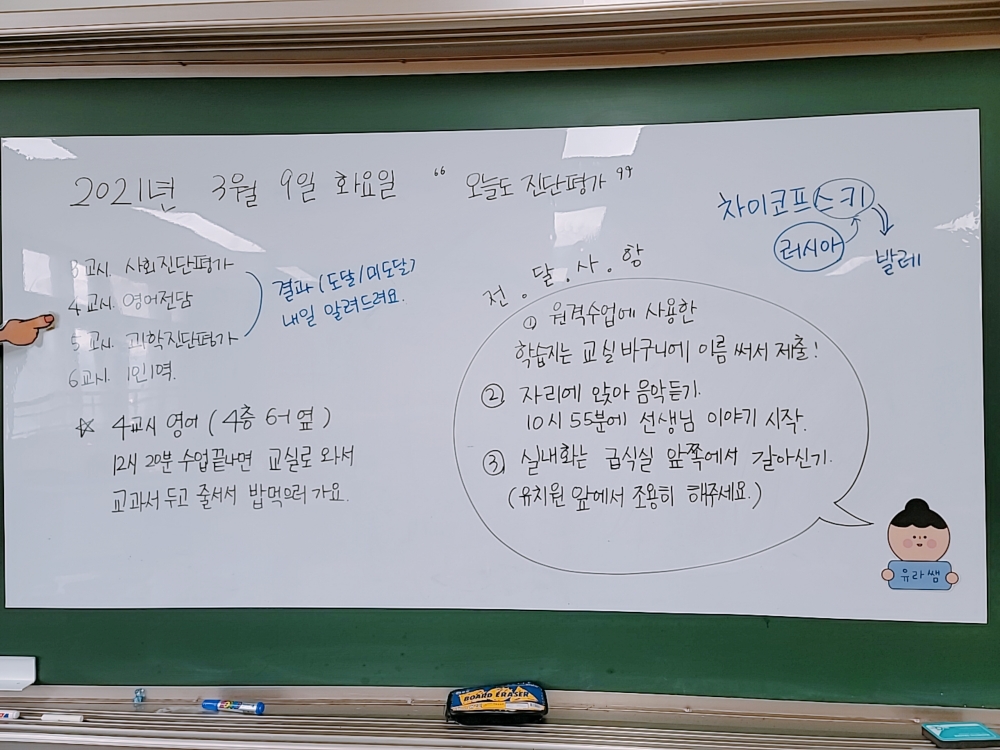 2021년 3월 9일 화요일 “ 오늘도 진단평가 ”
3교시. 사회진단평가
4교시. 영어전담
5교시. 과학진단평가
6교시. 1인1역.
결과 (도달/미도달)
내일 알려드려요.
☆ 4교시 영어 ( 4층 6-1 옆 )
12시 20분 수업끝나면 교실로 와서
교과서 두고 줄서서 밥먹으러 가요.
차이코프스키
러시아
발레
전.달.사.항
① 원격수업에 사용한
학습지는 교실 바구니에 이름 써서 제출!
② 자리에 앉아 음악듣기.
10시 55분에 선생님 이야기 시작.
③ 실내화는 급식실 앞쪽에서 갈아신기.
(유치원 앞에서 조용히 해주세요.)
유라쌤
BOARD ERASER